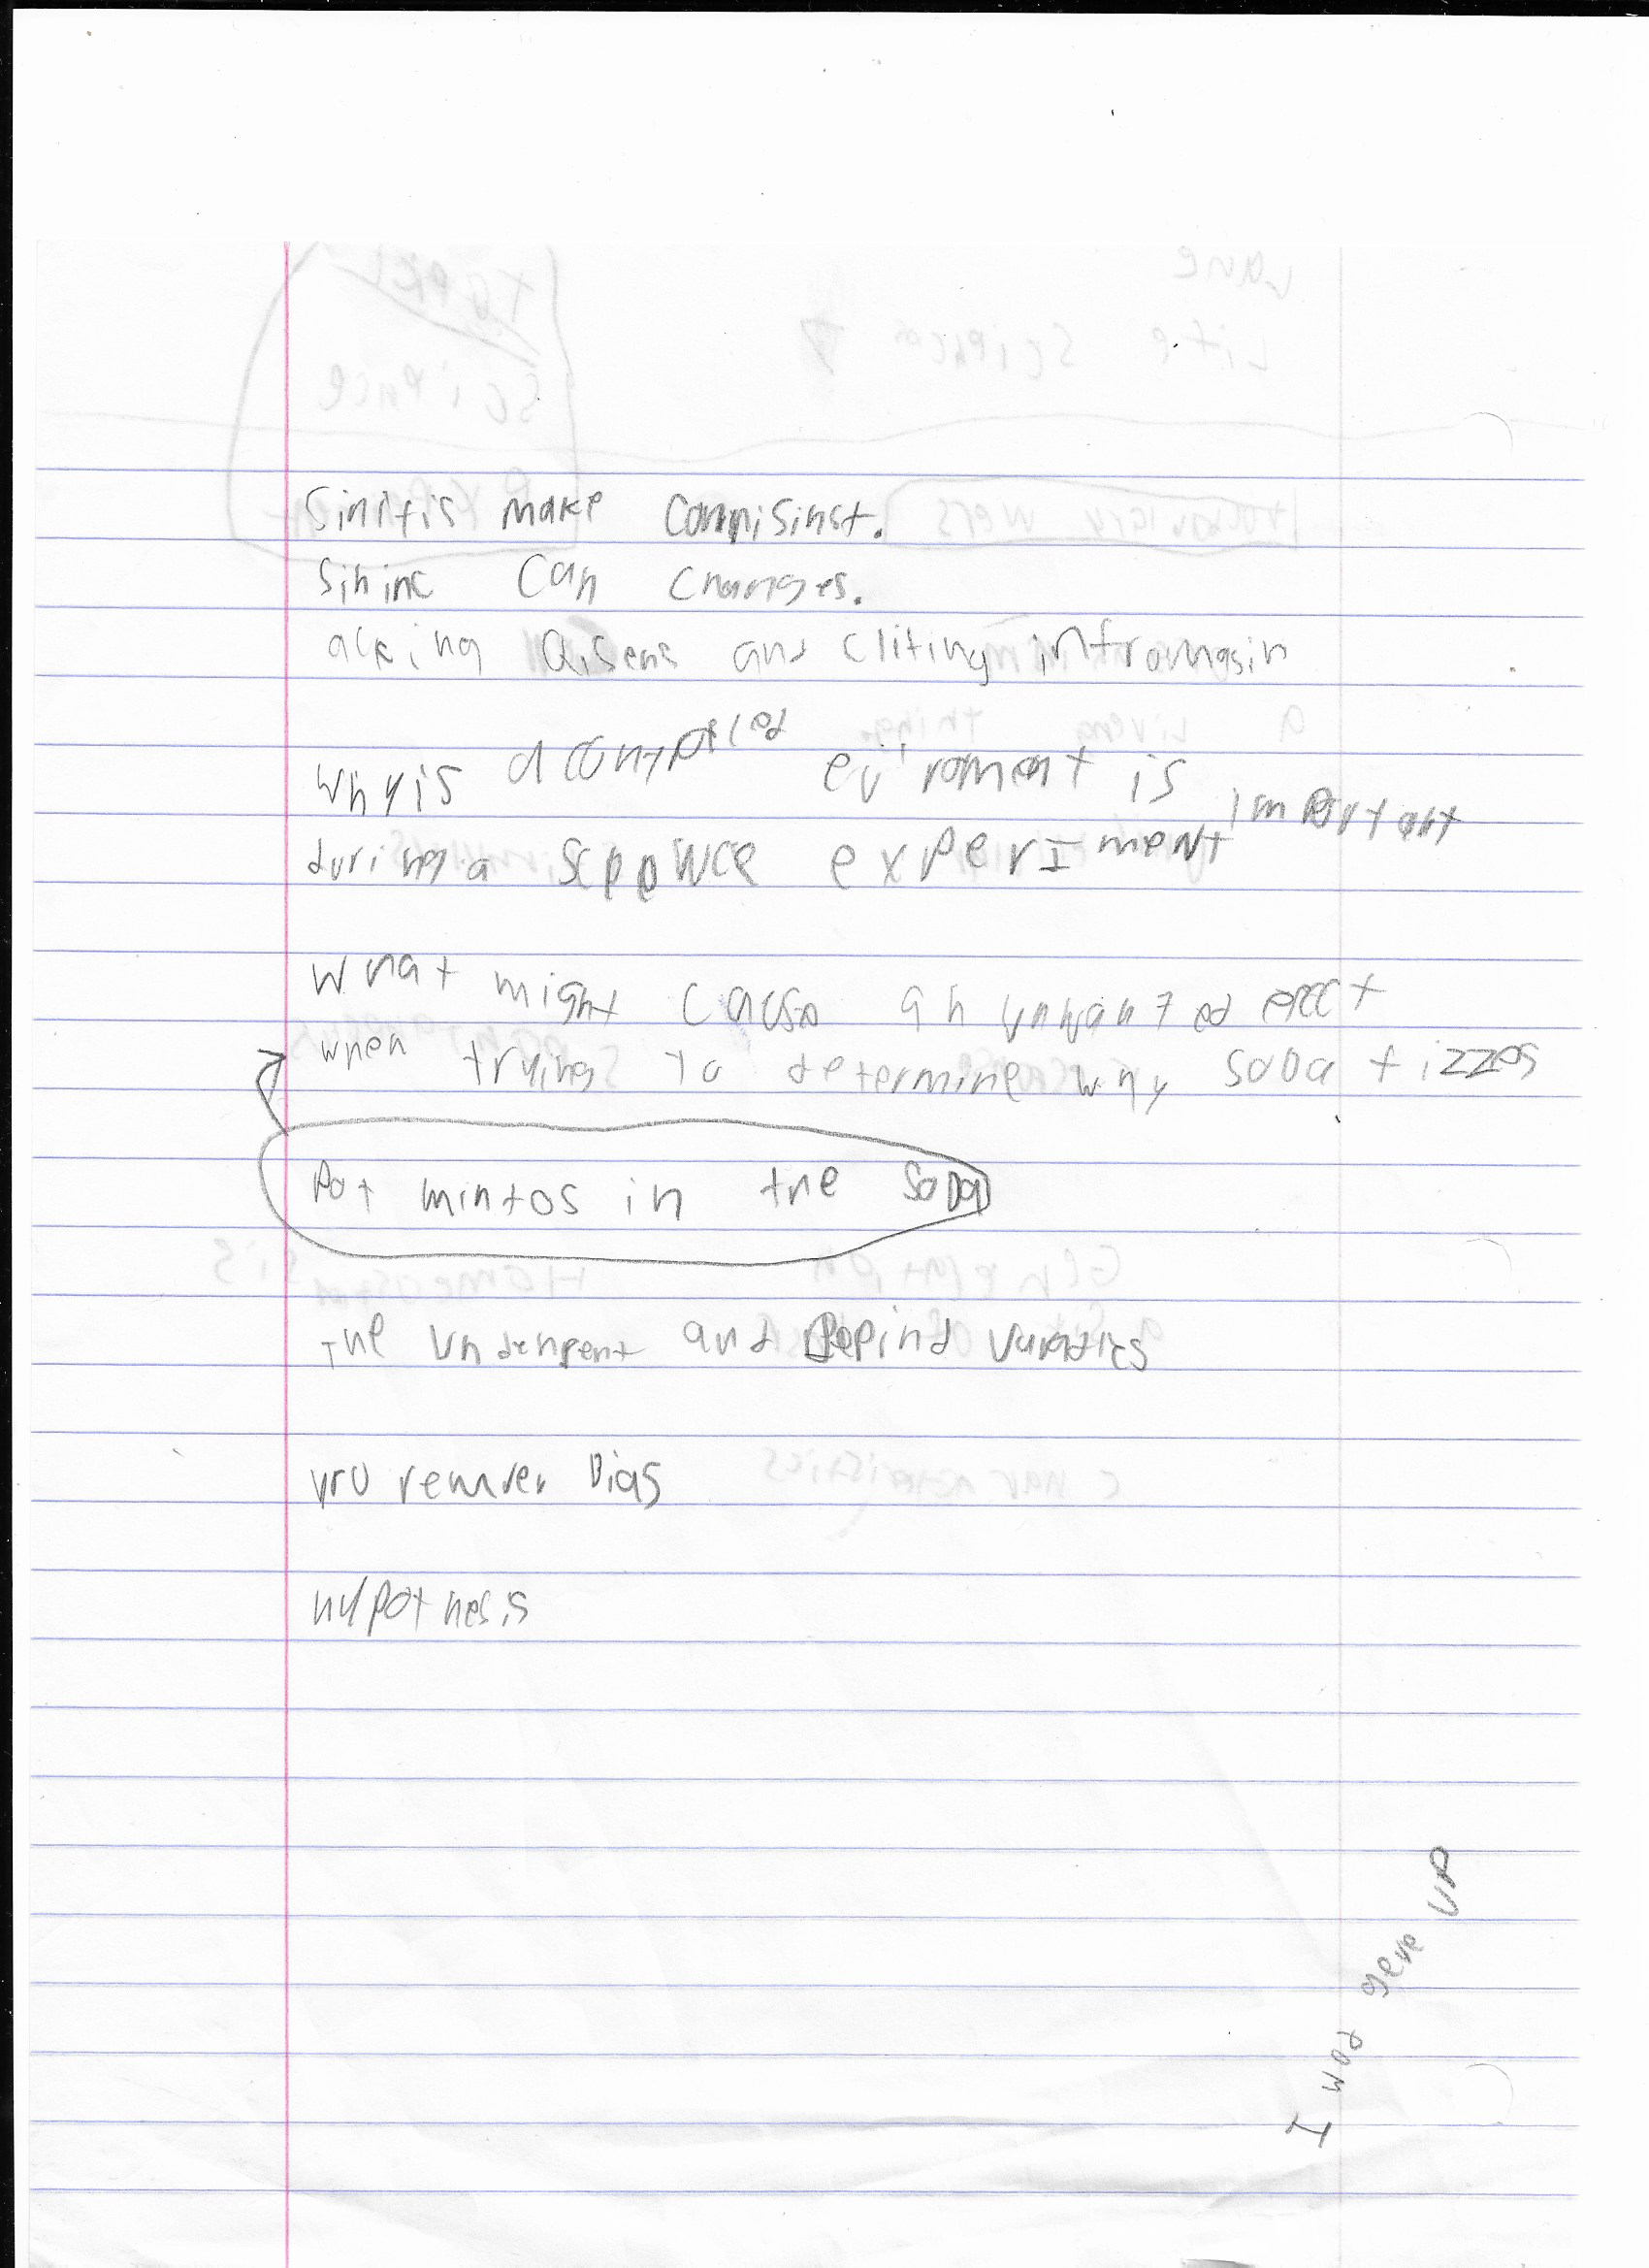 Sinitfis make Compisinst.
Sihinc Can Changes.
acking Qisens and cliting infrowngsin
Why is a contpricled eviroment is important
during a Science experiment
What might cause an unwanted efect
when trying to determine why soda fizzes
Pot mintos in the soda
The Undenpent and Depind
you remder Bias
hypothesis
I wod geve UP